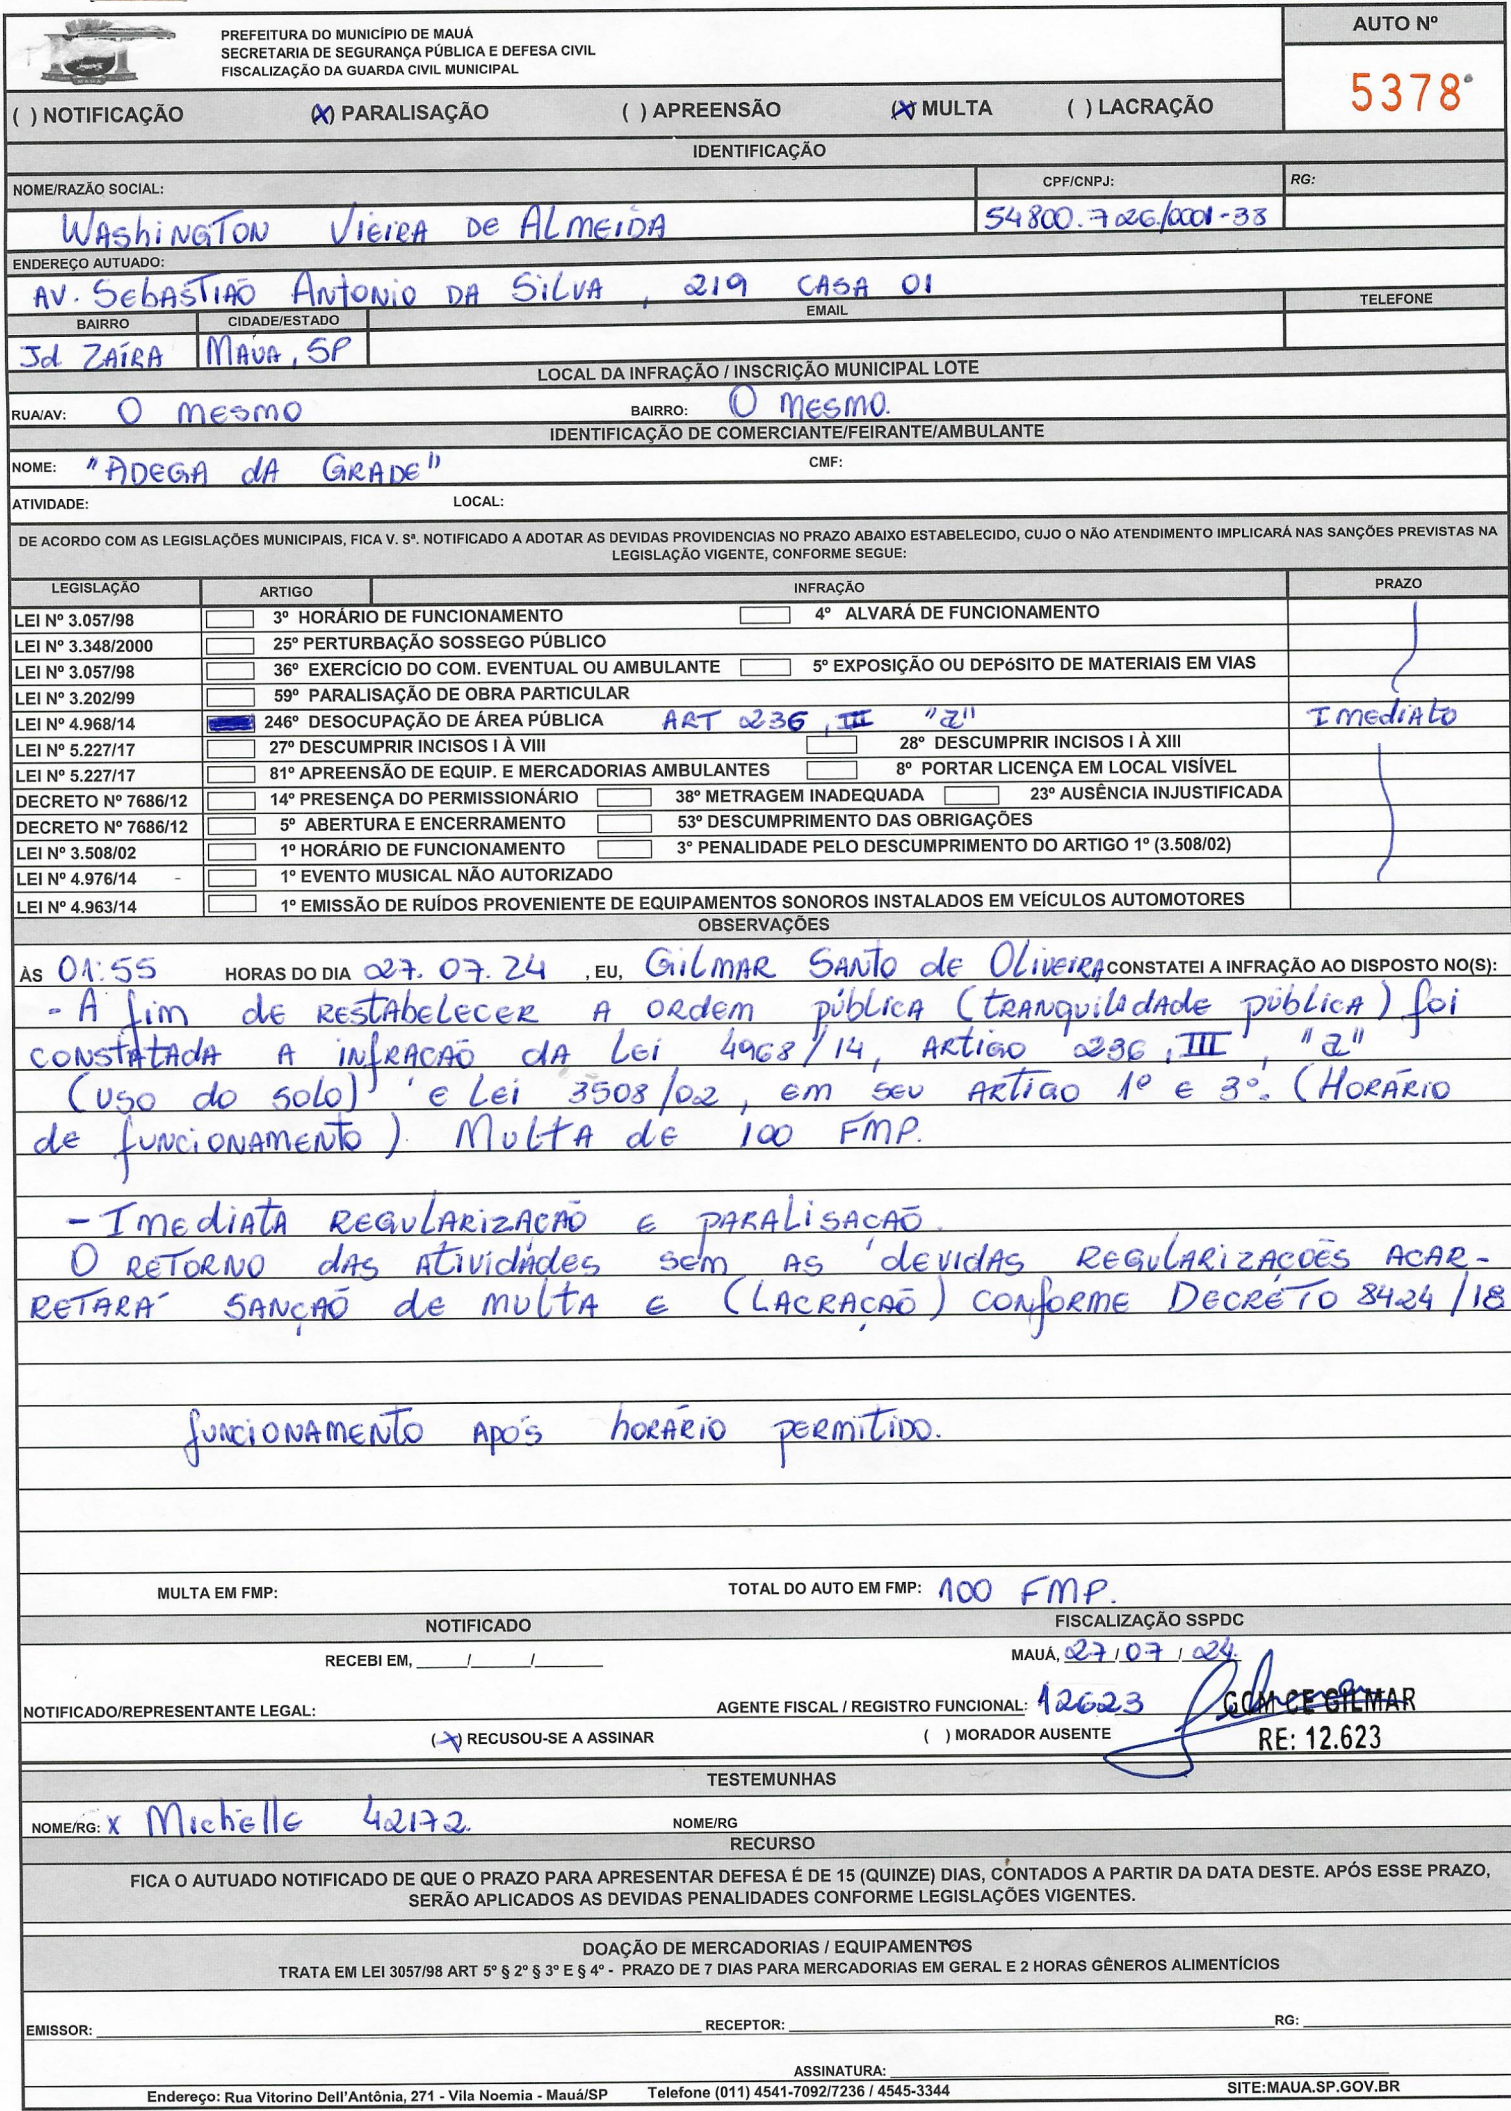 PREFEITURA DO MUNICÍPIO DE MAUÁ
SECRETARIA DE SEGURANÇA PÚBLICA E DEFESA CIVIL
FISCALIZAÇÃO DA GUARDA CIVIL MUNICIPAL
AUTO Nº
5378
( ) NOTIFICAÇÃO (X) PARALISAÇÃO ( ) APREENSÃO (X) MULTA ( ) LACRAÇÃO
IDENTIFICAÇÃO
NOME/RAZÃO SOCIAL: CPF/CNPJ: RG:
WAShiNGTON VIEIRA DE ALMEIDA 54800.726/0001-33
ENDEREÇO AUTUADO:
AV. SEbASTIAO ANtONiO DA SiLVA, 219 CASA 01
BAIRRO CIDADE/ESTADO EMAIL TELEFONE
Jd ZAÍRA MAUA, SP
LOCAL DA INFRAÇÃO / INSCRIÇÃO MUNICIPAL LOTE
RUA/AV: O mesmo BAIRRO: O mesmo.
IDENTIFICAÇÃO DE COMERCIANTE/FEIRANTE/AMBULANTE
NOME: "ADEGA dA GRADE" CMF:
ATIVIDADE: LOCAL:
DE ACORDO COM AS LEGISLAÇÕES MUNICIPAIS, FICA V. Sª. NOTIFICADO A ADOTAR AS DEVIDAS PROVIDENCIAS NO PRAZO ABAIXO ESTABELECIDO, CUJO O NÃO ATENDIMENTO IMPLICARÁ NAS SANÇÕES PREVISTAS NA
LEGISLAÇÃO VIGENTE, CONFORME SEGUE:
LEGISLAÇÃO ARTIGO INFRAÇÃO PRAZO
LEI Nº 3.057/98 3º HORÁRIO DE FUNCIONAMENTO 4º ALVARÁ DE FUNCIONAMENTO
LEI Nº 3.348/2000 25º PERTURBAÇÃO SOSSEGO PÚBLICO
LEI Nº 3.057/98 36º EXERCÍCIO DO COM. EVENTUAL OU AMBULANTE 5º EXPOSIÇÃO OU DEPóSITO DE MATERIAIS EM VIAS
LEI Nº 3.202/99 59º PARALISAÇÃO DE OBRA PARTICULAR
LEI Nº 4.968/14 246º DESOCUPAÇÃO DE ÁREA PÚBLICA ART 236, III "a" Imediato
LEI Nº 5.227/17 27º DESCUMPRIR INCISOS I À VIII 28º DESCUMPRIR INCISOS I À XIII
LEI Nº 5.227/17 81º APREENSÃO DE EQUIP. E MERCADORIAS AMBULANTES 8º PORTAR LICENÇA EM LOCAL VISÍVEL
DECRETO Nº 7686/12 14º PRESENÇA DO PERMISSIONÁRIO 38º METRAGEM INADEQUADA 23º AUSÊNCIA INJUSTIFICADA
DECRETO Nº 7686/12 5º ABERTURA E ENCERRAMENTO 53º DESCUMPRIMENTO DAS OBRIGAÇÕES
LEI Nº 3.508/02 1º HORÁRIO DE FUNCIONAMENTO 3º PENALIDADE PELO DESCUMPRIMENTO DO ARTIGO 1º (3.508/02)
LEI Nº 4.976/14 1º EVENTO MUSICAL NÃO AUTORIZADO
LEI Nº 4.963/14 1º EMISSÃO DE RUÍDOS PROVENIENTE DE EQUIPAMENTOS SONOROS INSTALADOS EM VEÍCULOS AUTOMOTORES
OBSERVAÇÕES
ÀS 01:55 HORAS DO DIA 27.07.24, EU, GiLMAR SANTO de OLiVEiRA CONSTATEI A INFRAÇÃO AO DISPOSTO NO(S):
- A fim de REStAbELECER A ORdem pública (tRANquilidAde pública) foi
CONStAtAdA A iNfRAÇÃO dA Lei 4968/14, ARtiGO 236, III, "a"
(USO do SOLO) e Lei 3508/02, em SEU ARtiGO 1º e 3º. (HORÁRiO
de fUNCiONAMENtO). MULtA de 100 FMP.
- ImediAtA REGULARizAÇÃO e PARALiSAÇÃO.
O REtORNO dAS AtividAdes sem AS devidAS REGULARizAÇÕES ACAR-
RETARÁ SANÇÃO de multA e (LACRAÇÃO) CONfORME DECRETO 8424/18
fUNCiONAMENtO APÓS hORÁRiO PERMitiDO.
MULTA EM FMP: TOTAL DO AUTO EM FMP: 100 FMP.
NOTIFICADO FISCALIZAÇÃO SSPDC
RECEBI EM, ____/____/____ MAUÁ, 27/07/24.
NOTIFICADO/REPRESENTANTE LEGAL: AGENTE FISCAL / REGISTRO FUNCIONAL: 12623 GCM CE GILMAR
(X) RECUSOU-SE A ASSINAR ( ) MORADOR AUSENTE RE: 12.623
TESTEMUNHAS
NOME/RG: x Michelle 42172. NOME/RG
RECURSO
FICA O AUTUADO NOTIFICADO DE QUE O PRAZO PARA APRESENTAR DEFESA É DE 15 (QUINZE) DIAS, CONTADOS A PARTIR DA DATA DESTE. APÓS ESSE PRAZO,
SERÃO APLICADOS AS DEVIDAS PENALIDADES CONFORME LEGISLAÇÕES VIGENTES.
DOAÇÃO DE MERCADORIAS / EQUIPAMENTOS
TRATA EM LEI 3057/98 ART 5º § 2º § 3º E § 4º - PRAZO DE 7 DIAS PARA MERCADORIAS EM GERAL E 2 HORAS GÊNEROS ALIMENTÍCIOS
EMISSOR: RECEPTOR: RG:
ASSINATURA:
Endereço: Rua Vitorino Dell'Antônia, 271 - Vila Noemia - Mauá/SP Telefone (011) 4541-7092/7236 / 4545-3344 SITE:MAUA.SP.GOV.BR